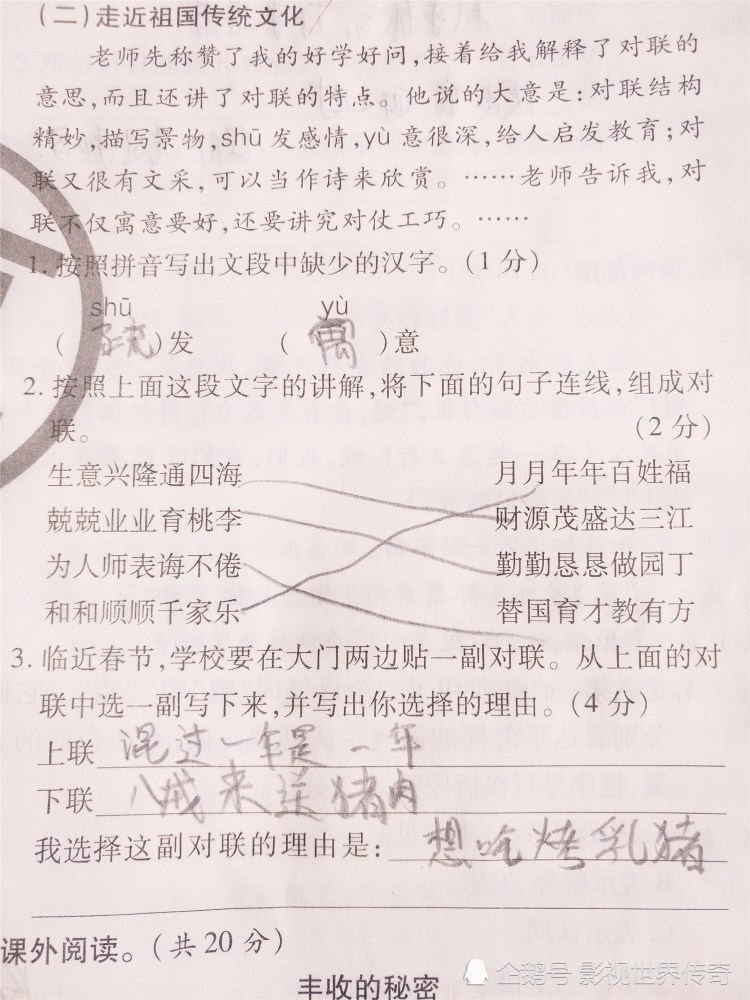 (二)走近祖国传统文化
老师先称赞了我的好学好问,接着给我解释了对联的
意思,而且还讲了对联的特点。他说的大意是:对联结构
精妙,描写景物,shū 发感情,yù 意很深,给人启发教育;对
联又很有文采,可以当作诗来欣赏。……老师告诉我,对
联不仅寓意要好,还要讲究对仗工巧。……
1. 按照拼音写出文段中缺少的汉字。(1 分)
shū yù
( )发 ( )意
2. 按照上面这段文字的讲解,将下面的句子连线,组成对
联。 (2 分)
生意兴隆通四海 月月年年百姓福
兢兢业业育桃李 财源茂盛达三江
为人师表诲不倦 勤勤恳恳做园丁
和和顺顺千家乐 替国育才教有方
3. 临近春节,学校要在大门两边贴一副对联。从上面的对
联中选一副写下来,并写出你选择的理由。(4 分)
上联 混过一年是一年
下联 八戒来送猪肉
我选择这副对联的理由是: 想吃烤乳猪
课外阅读。(共 20 分)
丰收的秘密
企鹅号 影视世界传奇